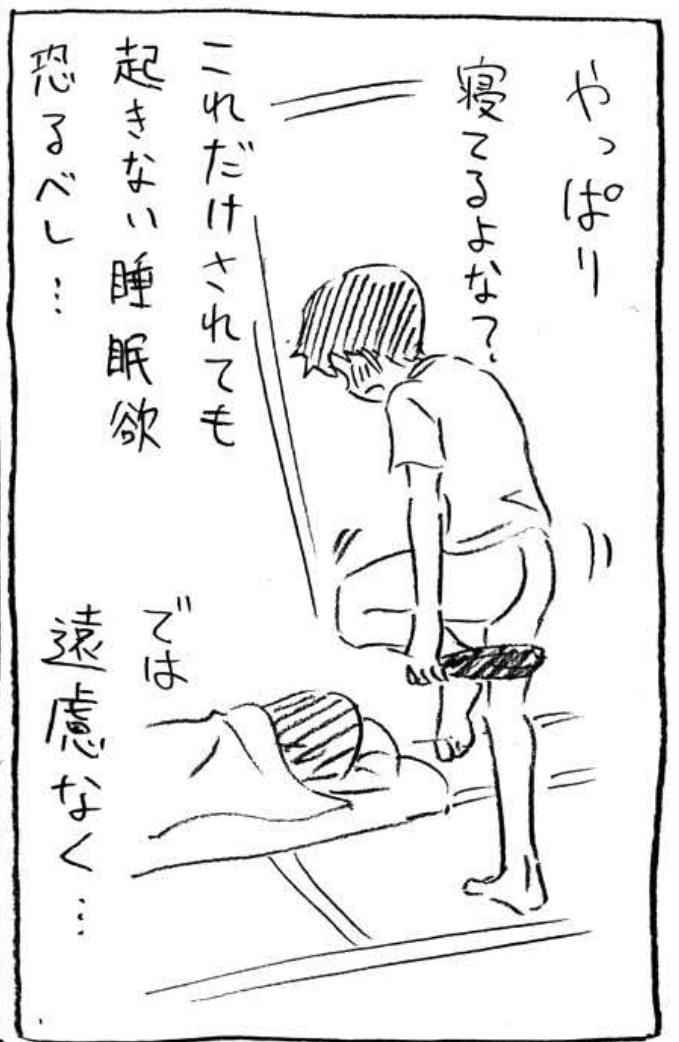 やっぱり
寝てるよな?
これだけされても
起きない睡眠欲
恐るべし…
では
遠慮なく…